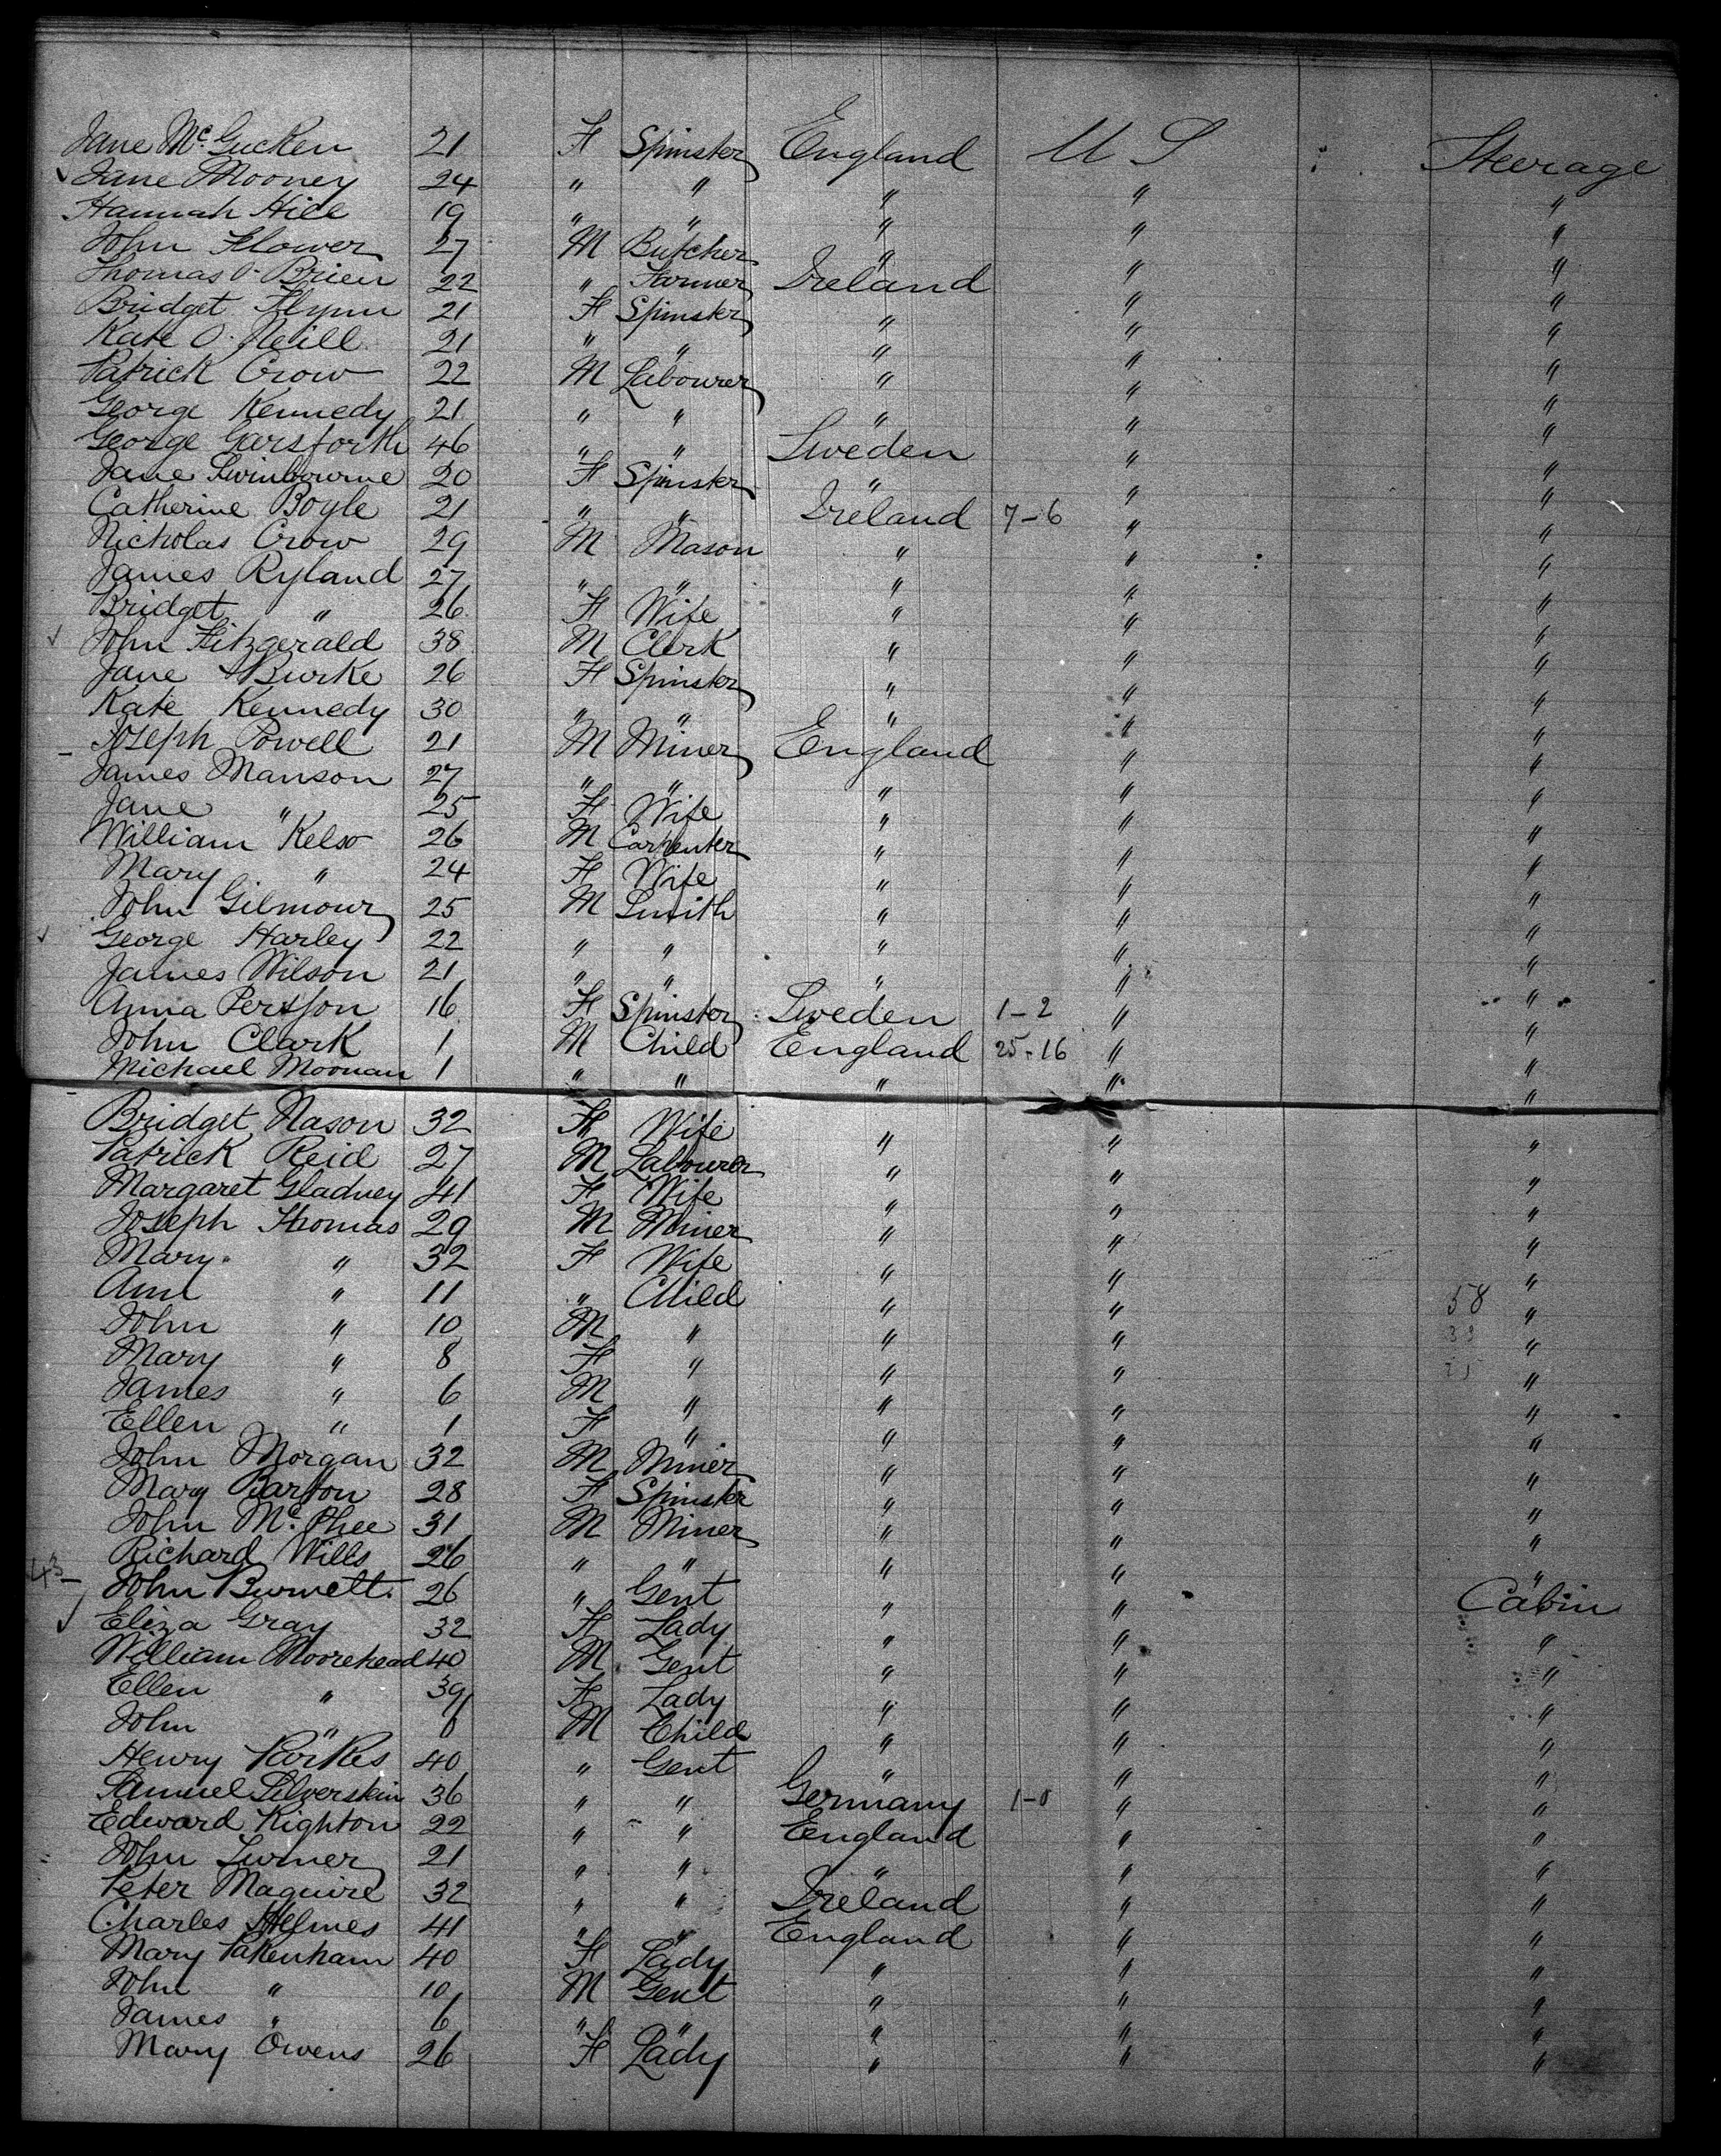 Jane McGucken 21 F Spinster England U S Steerage
Jane Mooney 24 " " " " "
Hannah Hill 19 " " " " "
John Flower 27 M Butcher " " "
Thomas O'Brien 22 " Farmer Ireland " "
Bridget Flynn 21 F Spinster " " "
Kate O'Neill 21 " " " " "
Patrick Crow 22 M Labourer " " "
George Kennedy 21 " " " " "
George Garsforth 46 " " Sweden " "
Jane Swinbourne 20 F Spinster " " "
Catherine Boyle 21 " " Ireland 7-6 " "
Nicholas Crow 29 M Mason " " "
James Ryland 27 " " " " "
Bridget " 26 F Wife " " "
John Fitzgerald 38 M Clerk " " "
Jane Burke 26 F Spinster " " "
Kate Kennedy 30 " " " " "
Joseph Powell 21 M Miner England " "
James Manson 27 " " " " "
Jane " 25 F Wife " " "
William Kelso 26 M Carpenter " " "
Mary " 24 F Wife " " "
John Gilmour 25 M Smith " " "
George Harley 22 " " " " "
James Wilson 21 " " " " "
Anna Persson 16 F Spinster Sweden 1-2 " "
John Clark 1 M Child England 25-16 " "
Michael Moonan 1 " " " " "
Bridget Nason 32 F Wife " " "
Patrick Reid 27 M Labourer " " "
Margaret Gladney 41 F Wife " " "
Joseph Thomas 29 M Miner " " "
Mary " 32 F Wife " " "
Ann " 11 " Child " " 58 "
John " 10 M " " " "
Mary " 8 F " " " "
James " 6 M " " " "
Ellen " 1 F " " " "
John Morgan 32 M Miner " " "
Mary Barton 28 F Spinster " " "
John McPhee 31 M Miner " " "
Richard Wills 26 " " " " "
John Burnett 26 " Gent " " Cabin
Eliza Gray 32 F Lady " " "
William Moorehead 40 M Gent " " "
Ellen " 39 F Lady " " "
John " M Child " " "
Henry Parkes 40 " Gent " " "
Samuel Silverstein 36 " " Germany 1-0 " "
Edward Righton 22 " " England " "
John Turner 21 " " " " "
Peter Maguire 32 " " Ireland " "
Charles 41 " " England " "
Mary Pakenham 40 F Lady " " "
John " 10 M Gent " " "
James " 6 " " " " "
Mary Owens 26 F Lady " " "